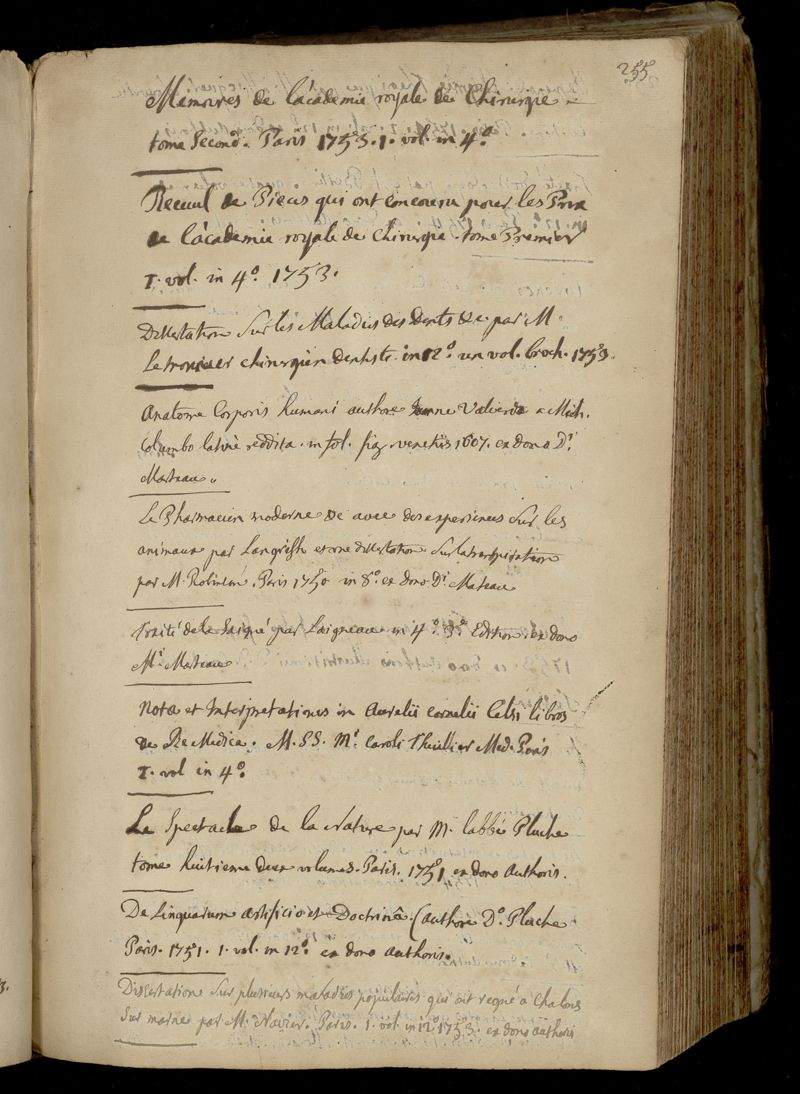 255
Memoires de l'academie royale de Chirurgie
tome Second. Paris 1753. 1. vol. in 4º.
Recueil de Pieces qui ont concouru pour les Prix
de l'academie royale de chirurgie. tome Premier
I. vol. in 4º. 1753.
Dissertation Sur les Maladies des Dents &c. par M.
chirurgien dentiste. in 12º. un vol. broch. 1753.
Anatome Corporis humani authore Joanne Valverda a Mich.
Columbo latinè reddita. in fol. fig. venetiis 1607. ex dono Dⁱ
Marteau.
Le Pharmacien moderne &c avec des experiences Sur les
animaux par Langrish et une dissertation Sur la transpiration
par M. Robinson. Paris 1750 in 8º. ex dono Dⁱ Mateau
Traité de la Saigné par Laigneau in 4º. 3ᵉ Edition. ex dono
Mⁱ Marteau
Notæ et Interpretationes in Aurelii Cornelii Celsi libros
de Re Medica. M.SS. Mⁱ Caroli Thuillier Med. Paris
I. vol in 4º.
Le Spectacle de la Nature par M. labbé Pluche
tome huitieme deux volumes. Paris. 1751 ex dono Authoris.
De Linguarum artificio et Doctrinâ. (authore Dº. Pluche
Paris. 1751. 1. vol. in 12º. ex dono authoris.
Dissertation Sur plusieurs maladies populaires qui ont regné a Chalons
Sur marne par M. Navier. Paris. 1. vol. in 12º 1753. ex dono authoris
3.